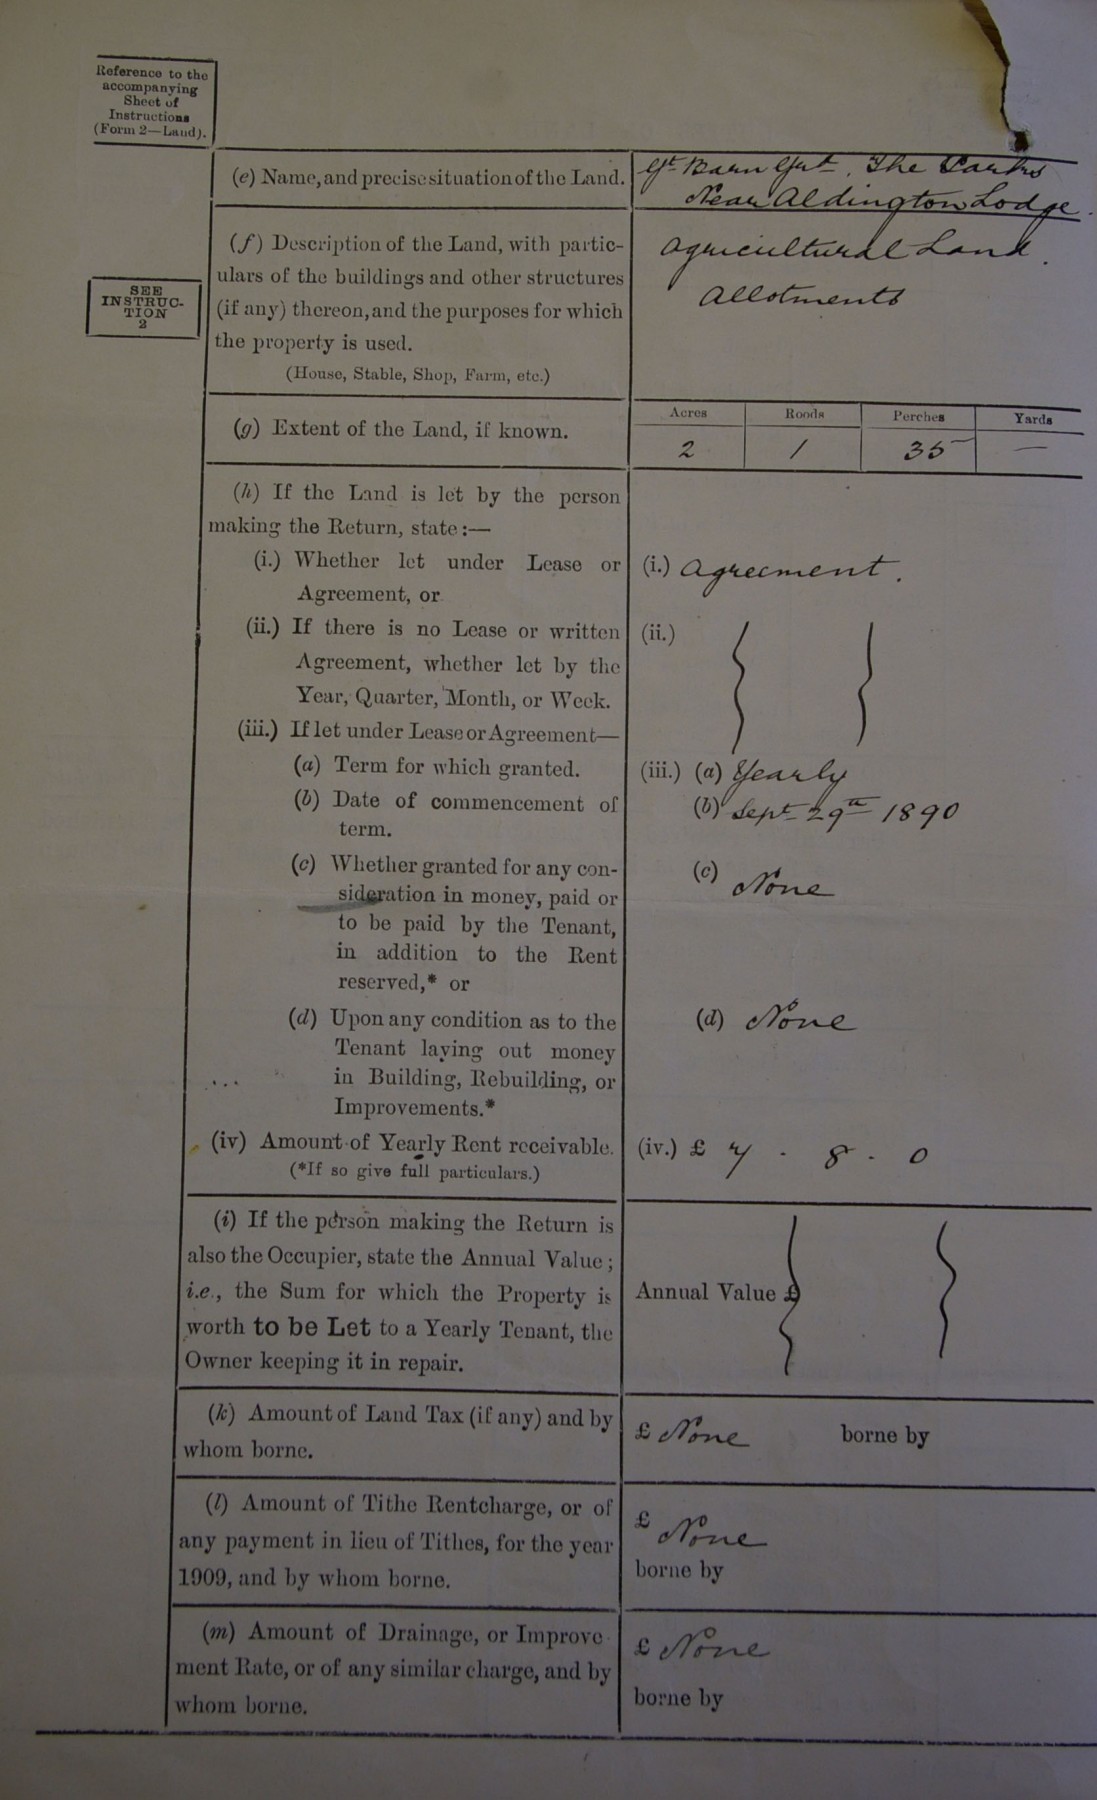 Reference to the
accompanying
Sheet of
Instructions
(Form 2—Land).
(e) Name, and precise situation of the Land.
Gt Barn The Parks
Near Aldington Lodge.
SEE
INSTRUC-
TION
2
(f) Description of the Land, with partic-
ulars of the buildings and other structures
(if any) thereon, and the purposes for which
the property is used.
(House, Stable, Shop, Farm, etc.)
Agricultural Land.
Allotments
(g) Extent of the Land, if known.
Acres Roods Perches Yards
2 1 35 —
(h) If the Land is let by the person
making the Return, state :—
(i.) Whether let under Lease or
Agreement, or
(i.) Agreement.
(ii.) If there is no Lease or written
Agreement, whether let by the
Year, Quarter, Month, or Week.
(ii.)
(iii.) If let under Lease or Agreement—
(a) Term for which granted.
(iii.) (a) Yearly
(b) Date of commencement of
term.
(b) Sept 29th 1890
(c) Whether granted for any con-
sideration in money, paid or
to be paid by the Tenant,
in addition to the Rent
reserved,* or
(c) None
(d) Upon any condition as to the
Tenant laying out money
in Building, Rebuilding, or
Improvements.*
(d) None
(iv) Amount of Yearly Rent receivable.
(*If so give full particulars.)
(iv.) £ 7 . 8 . 0
(i) If the person making the Return is
also the Occupier, state the Annual Value ;
i.e., the Sum for which the Property is
worth to be Let to a Yearly Tenant, the
Owner keeping it in repair.
Annual Value £
(k) Amount of Land Tax (if any) and by
whom borne.
£ None borne by
(l) Amount of Tithe Rentcharge, or of
any payment in lieu of Tithes, for the year
1909, and by whom borne.
£ None
borne by
(m) Amount of Drainage, or Improve-
ment Rate, or of any similar charge, and by
whom borne.
£ None
borne by